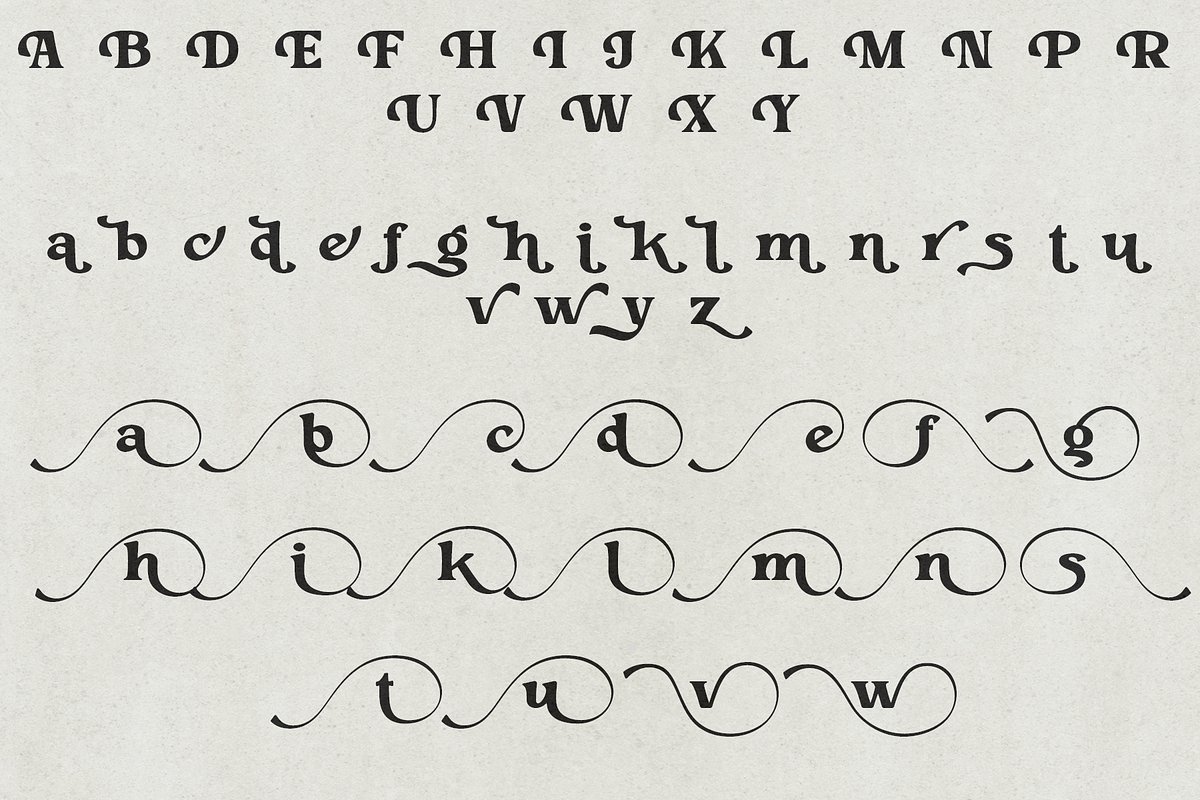 A B D E F H I J K L M N P R
U V W X Y
a b c d e f g h i k l m n r s t u
v w y z
a b c d e f g
h i k l m n s
t u v w